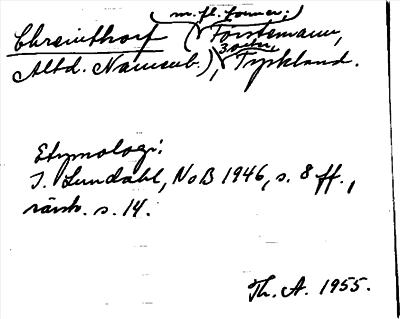 m. fl. former;
Chreinthorf (Förstemann,
Altd. Namenb.), 3 orter, Tyskland.
Etymologi:
I. Lundahl, NoB 1946, s. 8 ff.,
särsk. s. 14.
Th. A. 1955.